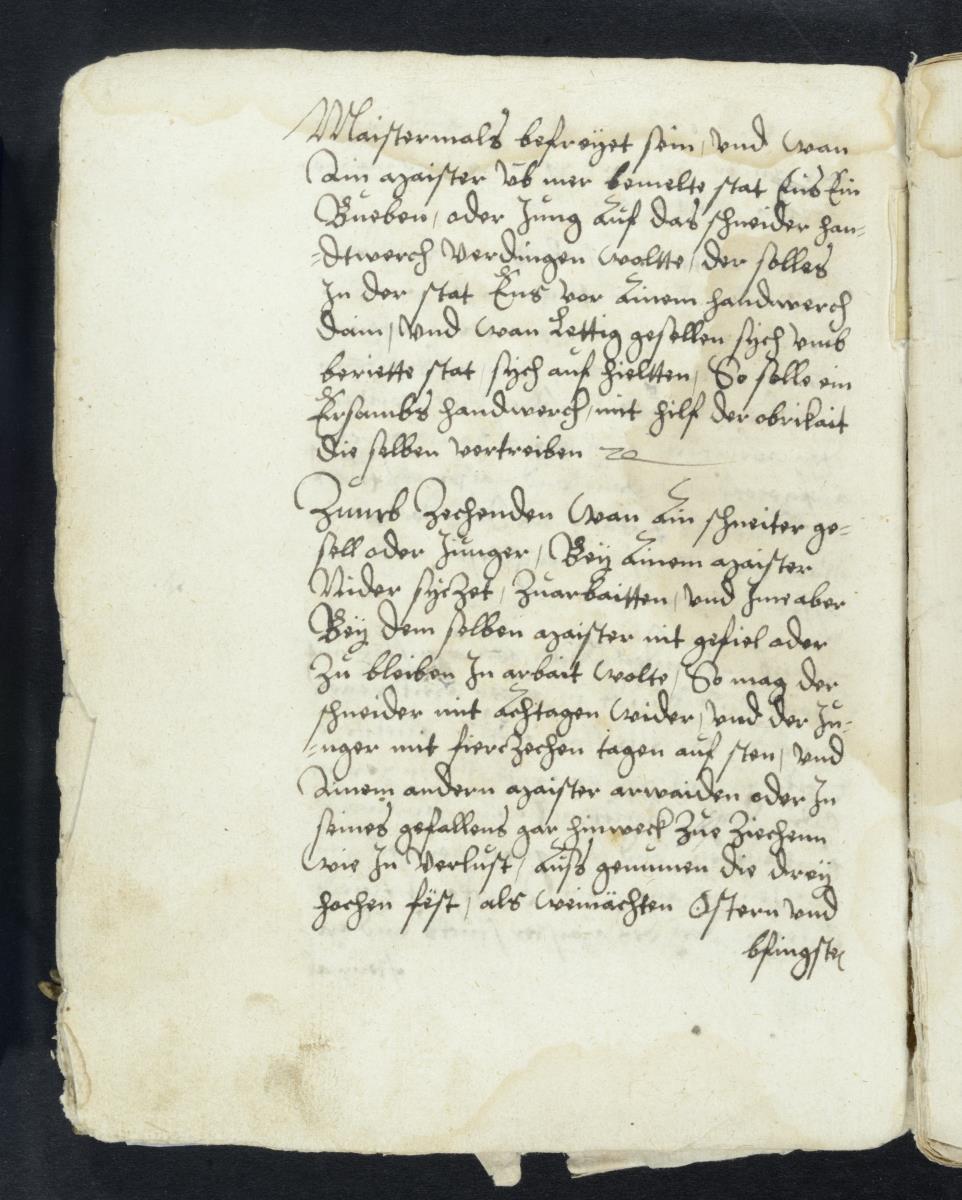 Maistermals befreÿet sein, und wan
Ain maister vb mer bemelte stat Ens Ein
Bueben, oder Jung Auf das schneider han=
=dtwerch verdingen woltte, der solles
In der stat Ens vor Ainem handwerch
dain, Und wan Lettig gesellen sÿch vmb
beriette stat, sÿch auf hieltten, So solle ein
Ersambs handwerch, mit hilf der obrikait
die selben vertreiben
Zumb Zechenden wan Ain schneiter ge=
sell oder Junger, Beÿ Ainem maister
Nider sÿczet, Zuarbaitten, und Ime aber
Beÿ dem selben maister nit gefiel oder
Zu bleiben In arbait wolte, So mag der
schneider mit Achtagen wider, und der Ju=
=nger mit fierczechen tagen auf sten, und
Ainem andern maister arwaiden oder In
seines gefallens gar hinweck Zue Ziechenn
wie In Verlust, Auss genumen die dreÿ
hochen fëst, als weinächten Ostern und
bfingsten